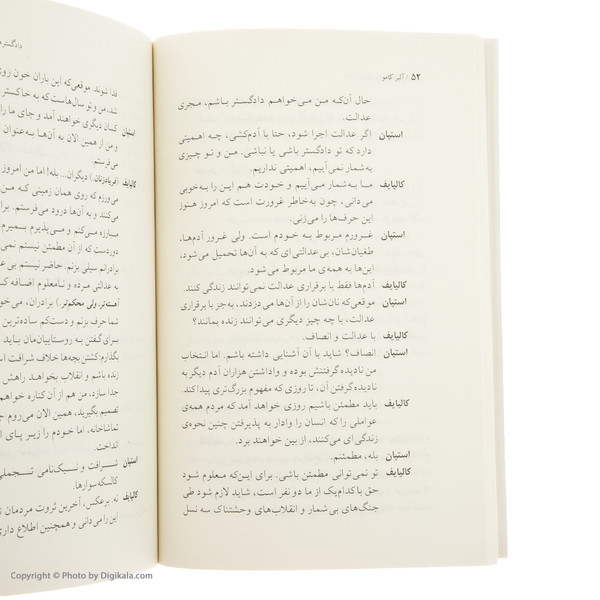 ۵۲ / آلبر کامو
حال آن‌که من می‌خواهم دادگستر باشم، مجری
عدالت.
استپان اگر عدالت اجرا شود، حتا با آدم‌کشی، چه اهمیتی
دارد که تو دادگستر باشی یا نباشی. من و تو چیزی
به‌شمار نمی‌آییم، اهمیتی نداریم.
کالیایف ما به شمار می‌آییم و خودت هم این را به‌خوبی
می‌دانی، چون به‌خاطر غرورت است که امروز هنوز
این حرف‌ها را می‌زنی.
استپان غرورم مربوط به خودم است. ولی غرور آدم‌ها،
طغیان‌شان، بی‌عدالتی‌ای که به آن‌ها تحمیل می‌شود،
این‌ها به همه‌ی ما مربوط می‌شود.
کالیایف آدم‌ها فقط با برقراری عدالت نمی‌توانند زندگی کنند.
استپان موقعی‌که نان‌شان را از آن‌ها می‌دزدند، به‌جز با برقراری
عدالت، با چه چیز دیگری می‌توانند زنده بمانند؟
کالیایف با عدالت و انصاف.
استپان انصاف؟ شاید با آن آشنایی داشته باشم. اما انتخاب
من نادیده گرفتنش بوده و واداشتن هزاران آدم دیگر به
نادیده‌گرفتن آن، تا روزی که مفهوم بزرگ‌تری پیدا کند.
کالیایف باید مطمئن باشیم روزی خواهد آمد که مردم همه‌ی
عواملی را که انسان را وادار به پذیرفتن چنین نحوه‌ی
زندگی ای می‌کنند، از بین خواهند برد.
استپان بله، مطمئنم.
کالیایف تو نمی‌توانی مطمئن باشی. برای این‌که معلوم شود
حق با کدام‌یک از ما دو نفر است، شاید لازم شود طی
جنگ‌های بی شمار و انقلاب‌های وحشتناک سه نسل
فدا شوند. موقعی‌که این باران خون روی
شد، من و تو سال‌هاست که به خاکستر
استپان کسان دیگری خواهند آمد و جای ما را
و من از همین الان به آن‌ها به‌عنوان
می‌فرستم.
کالیایف (فریادزنان.) دیگران... بله! اما من امروز
می‌ورزم که روی همان زمینی که من
می‌کنند و به آن‌ها درود می‌فرستم. برا
مبارزه می‌کنم و می‌پذیرم بمیرم.
دوردست که از آن مطمئن نیستم نمی
برادرانم سیلی بزنم. حاضر نیستم بی ع
به عدالتی مرده و نامعلوم اضافه ک
(آهسته‌تر، ولی محکم‌تر.) برادران، می‌خو
شما حرف بزنم و دست‌کم ساده‌ترین
برای گفتن به روستاییان‌مان باید
بگذارم: کشتن بچه‌ها خلاف شرافت ا
زنده باشم و انقلاب بخواهد راهش
جدا سازد، من هم از آن کناره خواهم
تصمیم بگیرید، من همین الان می‌روم ج
تماشاخانه، اما خودم را زیر پای ا
انداخت.
استپان شرافت و نیک‌نامی تجملی
کالسکه سوارها.
کالیایف نه. برعکس، آخرین ثروت مردمان
این را می‌دانی و همچنین اطلاع داری
Copyright © Photo by Digikala.com